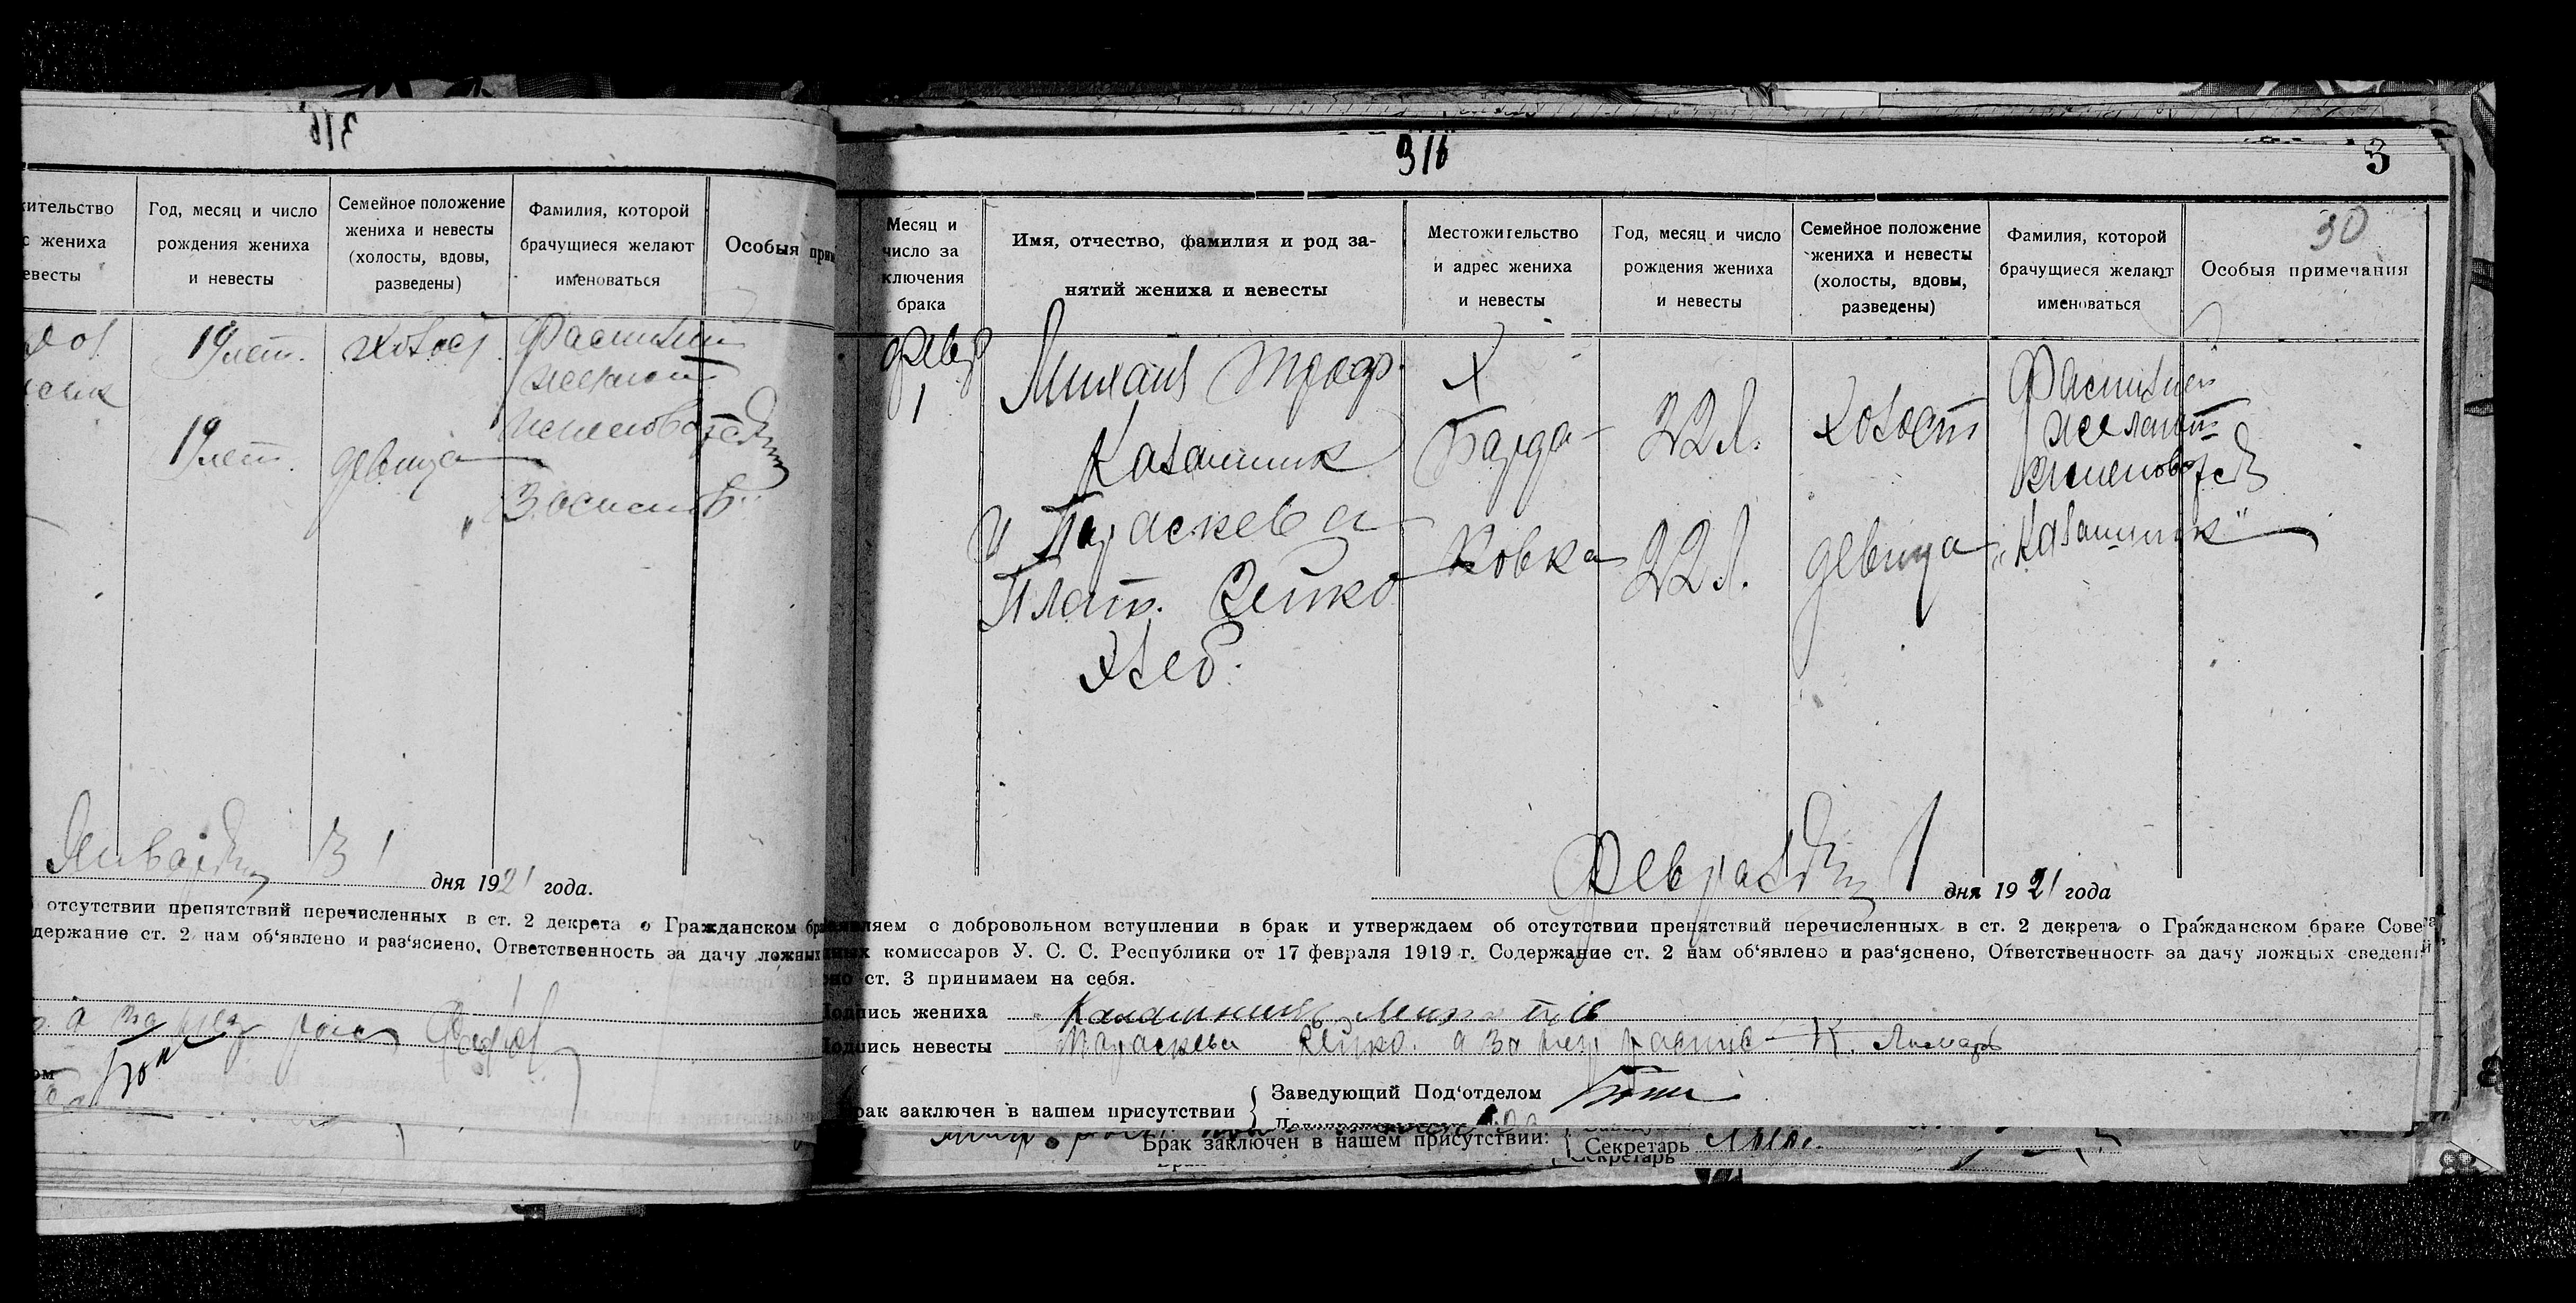 316
жительство
с жениха
евесты
Год, месяц и число
рождения жениха
и невесты
Семейное положение
жениха и невесты
(холосты, вдовы,
разведены)
Фамилия, которой
брачущиеся желают
именоваться
Особыя прим
19 лет.
холост
Фамилии
желают
именоваться
19 лет.
девица
Января 31 дня 1921 года.
отсутствии препятствий перечисленных в ст. 2 декрета о Гражданском бра
держание ст. 2 нам об‘явлено и раз‘яснено. Ответственность за дачу ложных
316
3
30
Месяц и
число за
ключения
брака
Имя, отчество, фамилия и род за-
нятий жениха и невесты
Местожительство
и адрес жениха
и невесты
Год, месяц и число
рождения жениха
и невесты
Семейное положение
жениха и невесты
(холосты, вдовы,
разведены)
Фамилия, которой
брачущиеся желают
именоваться
Особыя примечания
Февр
1
Михаил Троф.
Калашник
и Параскева
Плат. Рейко
хлеб.
Х
Барда-
ковка
22 л.
22 л.
холост
девица
Фамилией
желают
именоваться
„Калашник"
Февраля 1 дня 1921 года
являем о добровольном вступлении в брак и утверждаем об отсутствии препятствий перечисленных в ст. 2 декрета о Гражданском браке Совета
ных комиссаров У. С. С. Республики от 17 февраля 1919 г. Содержание ст. 2 нам об‘явлено и раз‘яснено, Ответственность за дачу ложных сведений,
но ст. 3 принимаем на себя.
Подпись жениха Калашник Михаил
Подпись невесты Параскева Рейко. а за негр распис К. Лимарь
Брак заключен в нашем присутствии
Заведующий Под‘отделом
Брак заключен в нашем присутствии:
Секретарь
Секретарь